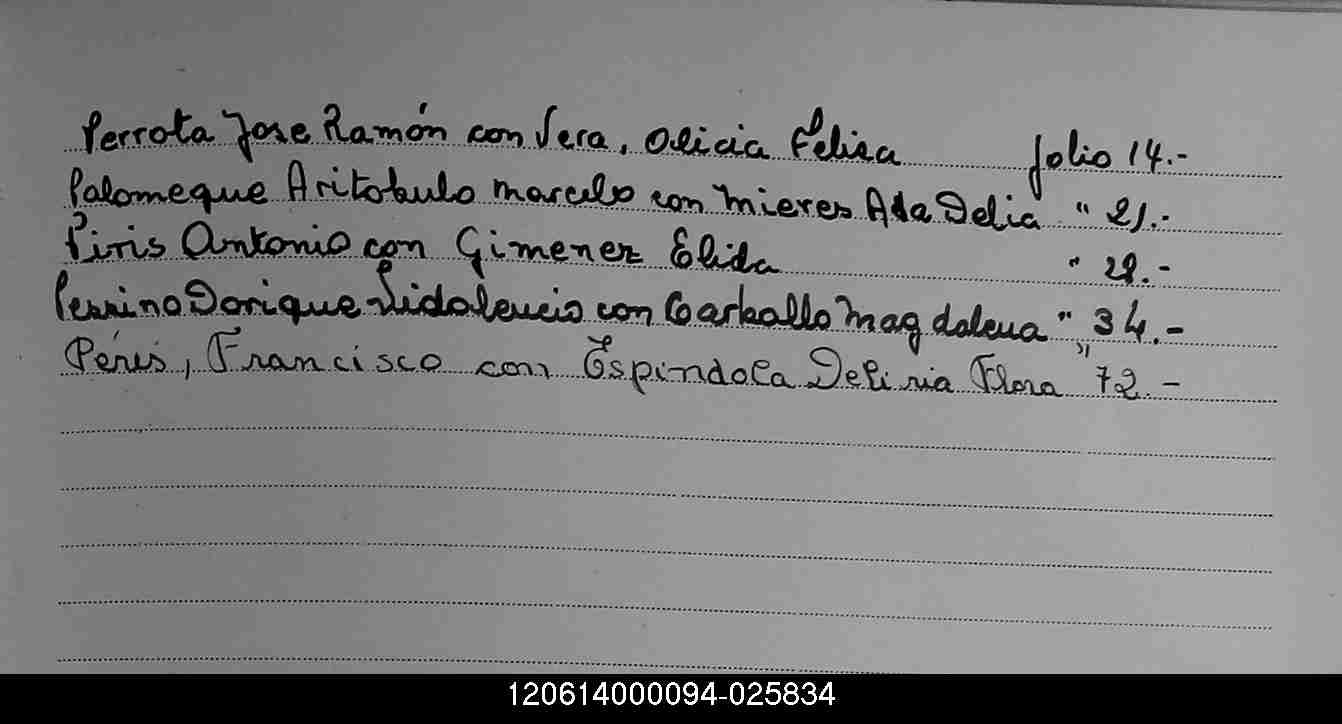 Perrota Jose Ramón con Vera, Alicia Felisa folio 14.-
Palomeque Aritobulo Marcelo con Mieres Ada Delia " 21.-
Piris Antonio con Gimenez Elida " 28.-
Perrino Dorique con Carballo Magdalena " 34.-
Péris, Francisco con Espindola Delinia Flora " 72.-
120614000094-025834